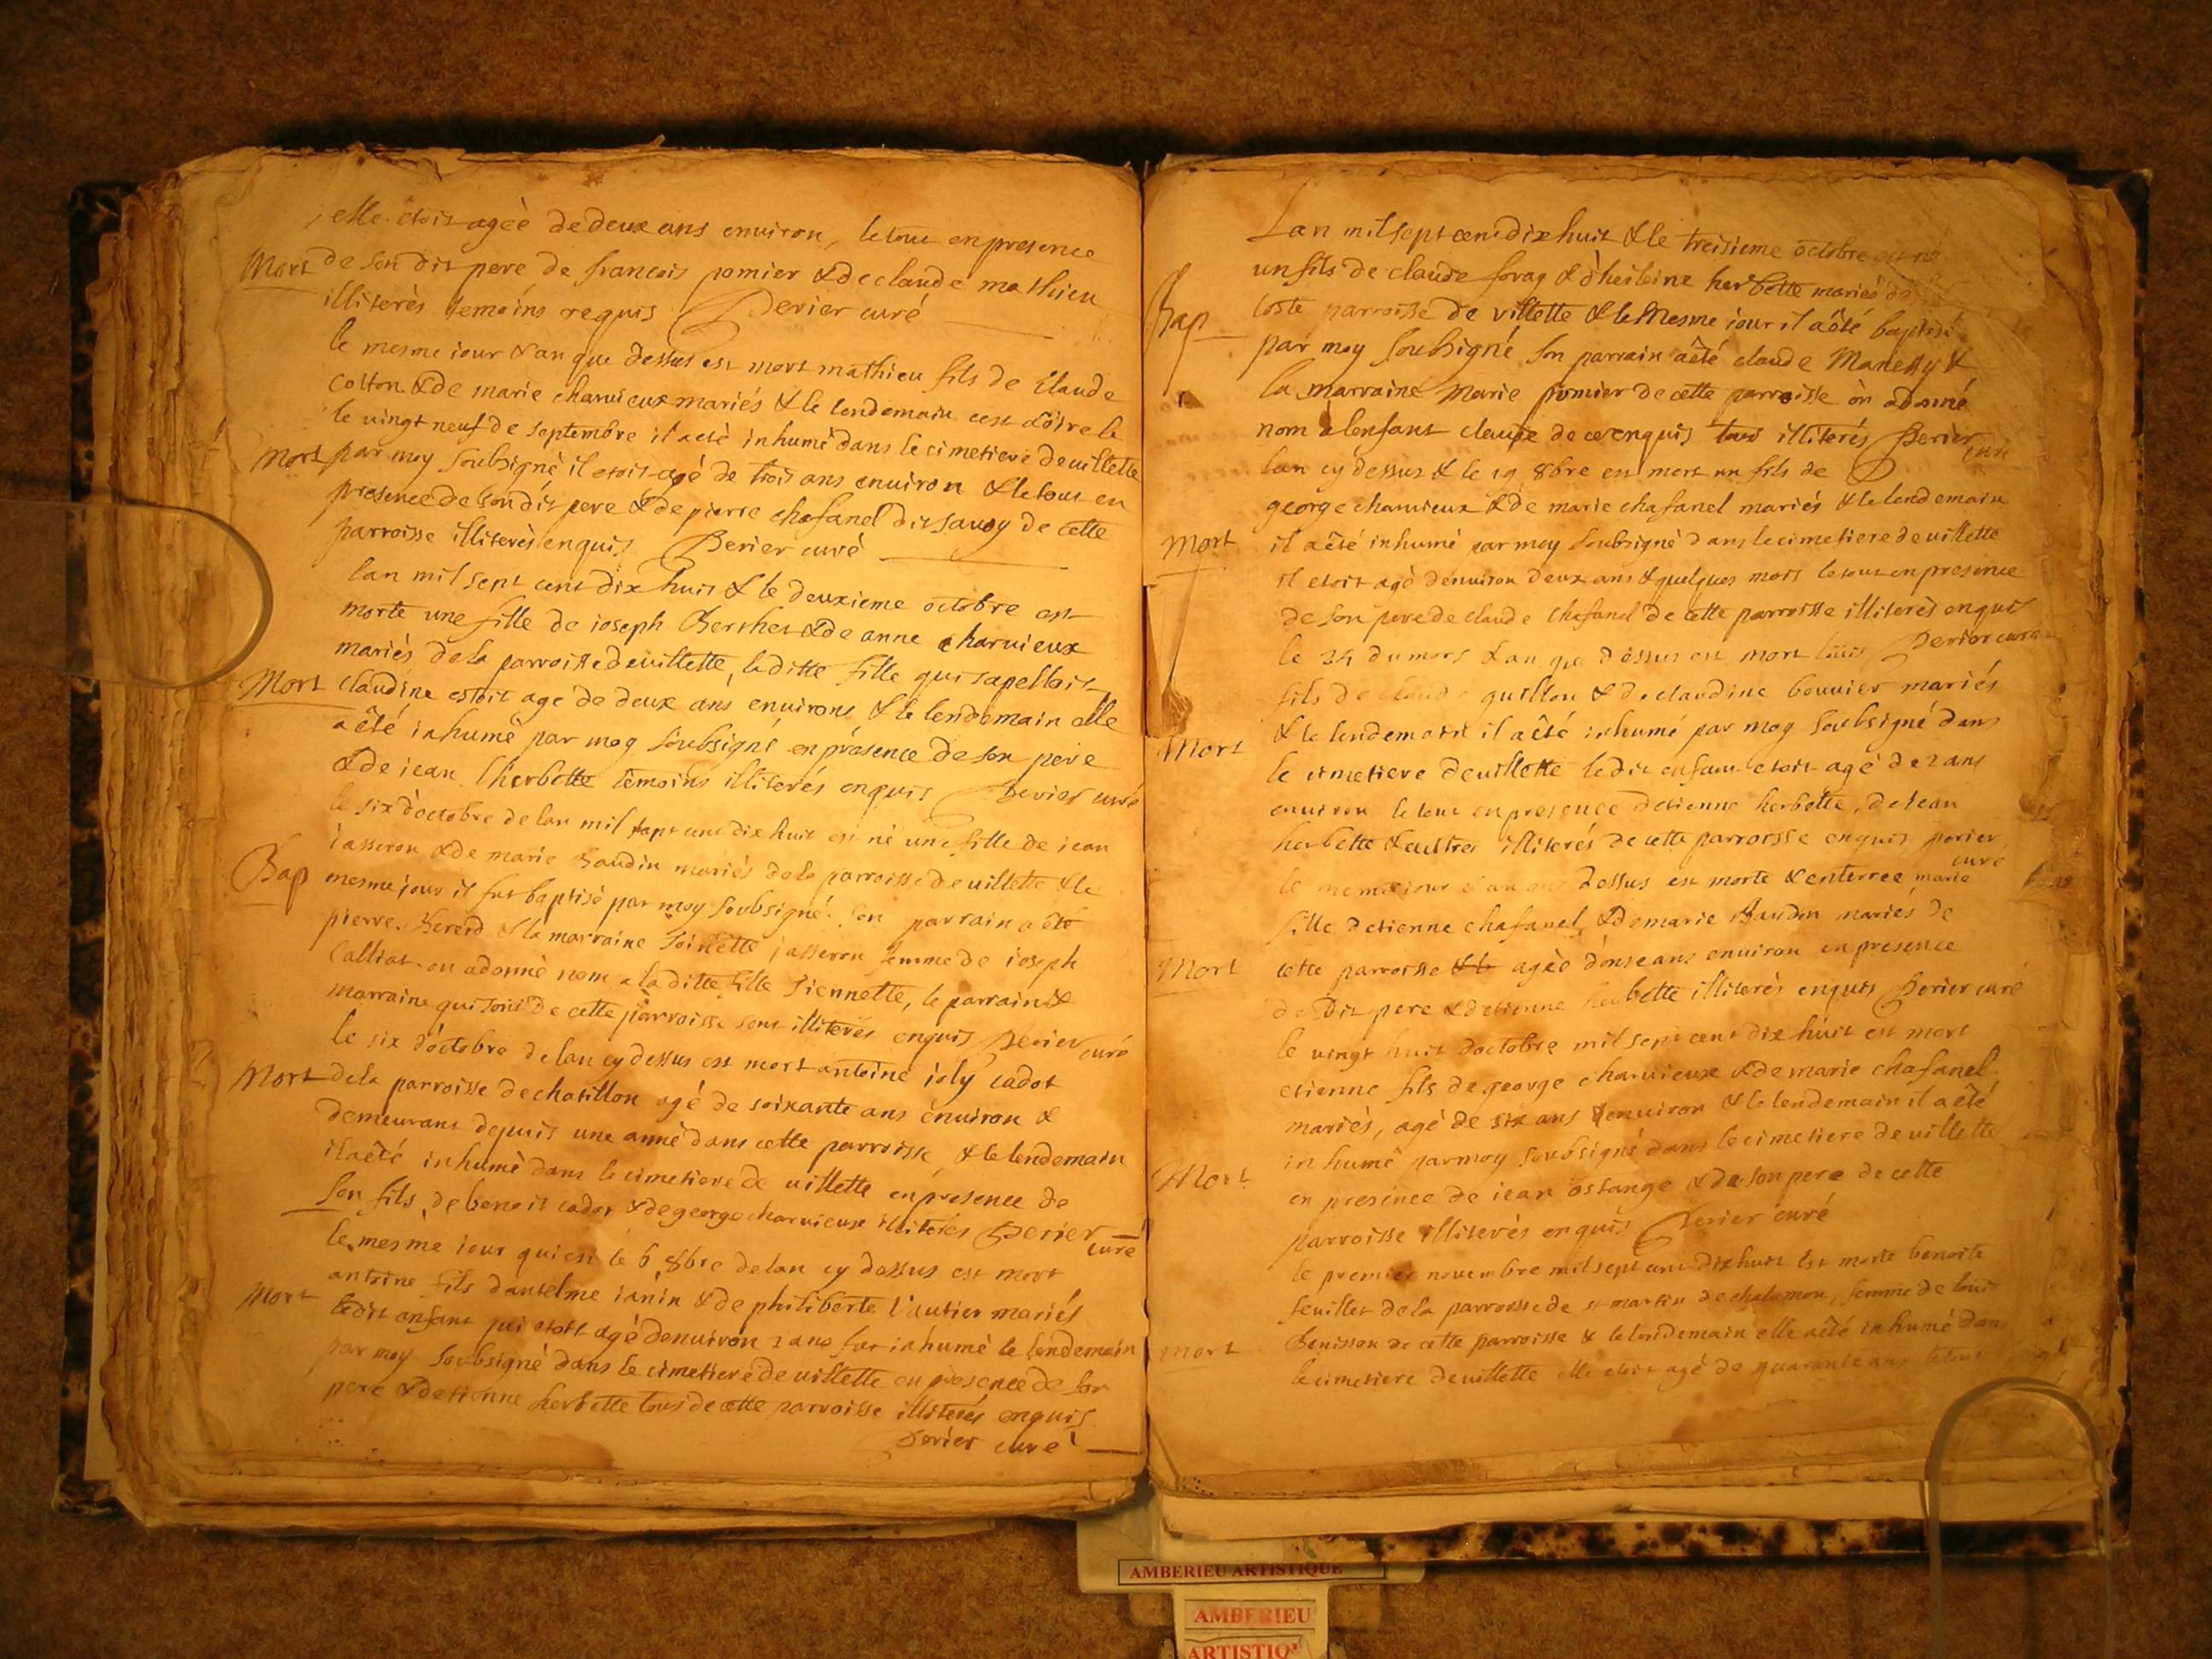 elle etoit agèè de deux ans environ, le tout en presence
Mort de son dit pere de francois pomier & de claude mathieu
illiterès temoins requis Perier curé
le mesme iour & an que dessus est mort mathieu fils de Claude
Colton & de marie charvieux mariés & le lendemain cest adire le
le vingt neuf de septembre il a eté inhumé dans le cimetiere de villette
Mort par moy soubsigné il etoit agé de trois ans environ & le tout en
presence de son dit pere & de pierre chafanel dit savoy de cette
parroisse illiterés enquis Perier curé
lan mil sept cent dix huit & le deuxieme octobre est
morte une fille de ioseph Berthet & de anne charvieux
mariés de la parroisse de villette, la ditte fille qui sapelloit
Mort claudine estoit agé de deux ans environs & le lendemain elle
a été inhumé par moy soubsigné en presence de son pere
& de iean lherbette temoins illiterés enquis Perier curé
le six doctobre de lan mil sept cent dix huit est né une fille de iean
iasseron & de marie Baudin mariés de la parroisse de villette & le
Bap mesme iour il fut baptisé par moy soubsigné. Son parrain a été
pierre Bererd & la marraine ioinette iasseron femme de ioseph
Calliat on a donné nom a la ditte fille Piennette, le parrain &
marraine qui sont de cette parroisse sont illiterés enquis Perier curé
le six doctobre de lan cy dessus est mort antoine ioly cadot
Mort de la parroisse de chatillon agé de soixante ans environ &
demeurant depuis une anné dans cette parroisse & le lendemain
il a été inhumé dans le cimetiere de villette en presence de
Son fils de benoit cador & de george charvieux illiterés Perier curé
le mesme iour qui est le 6 8bre de lan cy dessus est mort
antoine fils dantelme ianin & de philiberte lautier mariés
Mort ledit enfant qui etoit agé denviron 2 ans fut inhumé le lendemain
par moy soubsigné dans le cimetiere de villette en presence de son
pere & detienne herbette tous de cette parroisse illiterés enquis
Perier curé
Lan mil sept cent dix huit & le treisieme octobre est né
un fils de claude forag & dheileine herbette mariés de
Bap
coste parroisse de villette & le mesme iour il a été baptisé
par moy soubsigné son parrain a été claude Manessy &
la marraine Marie pomier de cette parroisse on a donné
nom a lenfant claude de ce enquis tous illiterés Perier curé
lan cy dessus & le 19 8bre est mort un fils de
george charvieux & de marie chafanel mariés & le lendemain
Mort il a été inhumé par moy soubsigné dans le cimetiere de villette
il etoit agé denviron deux ans & quelques mois le tout en presence
de son pere de claude chafanel de cette parroisse illiterés enquis
le 24 du mois & an que dessus est mort louis Perier curé
fils de claude guillon & de claudine bouvier mariés
Mort & le lendemain il a été inhumé par moy soubsigné dans
le cimetiere de villette ledit enfant etoit agé de 2 ans
environ le tout en presence detienne herbette, de iean
herbette & autres illiterés de cette parroisse enquis perier curé
le mesme iour & an que dessus est morte & enterree marie
fille detienne chafanel & de marie Baudin mariés de
Mort cette parroisse & le agèè donse ans environ en presence
du dit pere & detienne herbette illiterés enquis Perier curé
le vingt huit doctobre mil sept cent dix huit est mort
etienne fils de george charvieux & de marie chafanel
mariés, agé de six ans denviron & le lendemain il a été
Mort inhumé par moy soubsigné dans le cimetiere de villette
en presence de iean ostange & de son pere de cette
parroisse illiterés enquis Perier curé
le premier novembre mil sept cent dix huit est morte benoite
feuillet de la parroisse de st martin de chalamon, femme de louis
Mort Benisson de cette parroisse & le lendemain elle a été inhumé dans
le cimetiere de villette elle etoit agé de quarante ans le tout
AMBERIEU ARTISTIQUE
AMBERIEU
ARTISTIQ